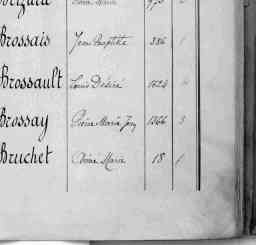 Brossais Jean Baptiste 336 1
Brossault Louis Désiré 1624
Brossay Pierre Marie Jean 1366 3
Bruchet Pierre Marie 18 1